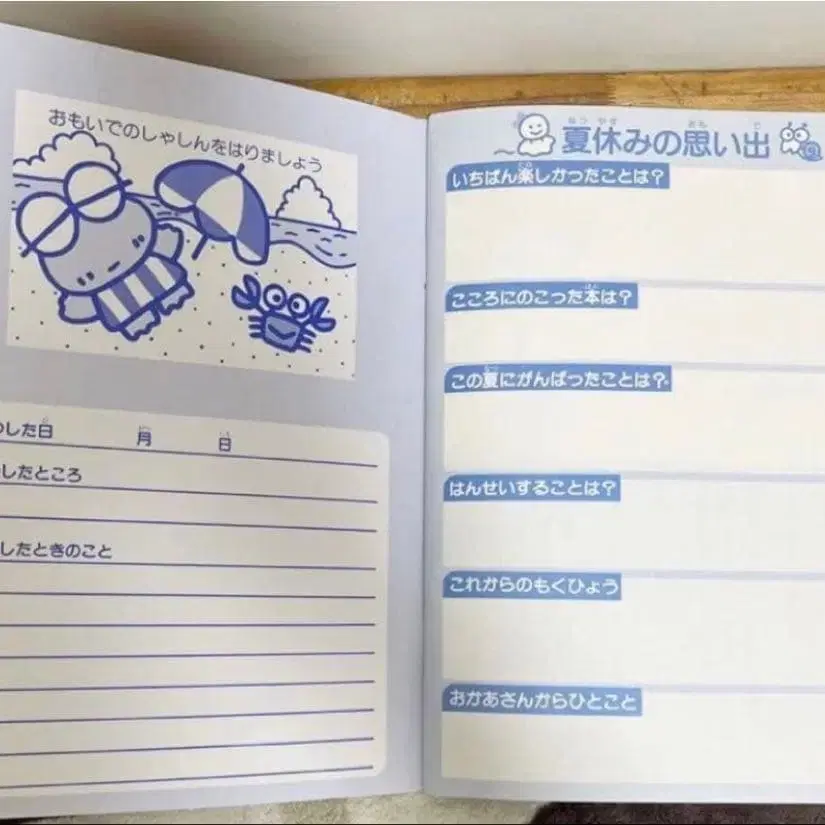 おもいでのしゃしんをはりましょう
した日 月 日
したところ
したときのこと
夏休みの思い出
いちばん楽しかったことは?
こころにのこった本は?
この夏にがんばったことは?
はんせいすることは?
これからのもくひょう
おかあさんからひとこと